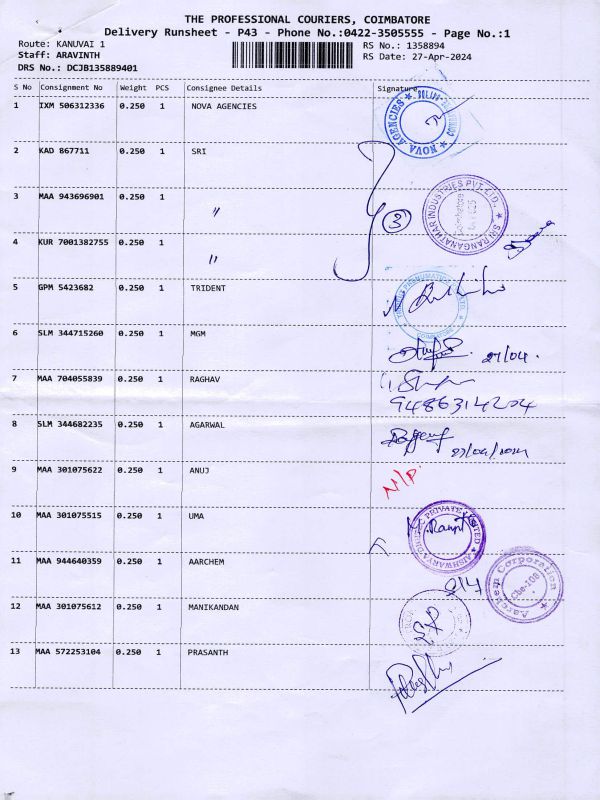 THE PROFESSIONAL COURIERS, COIMBATORE
Delivery Runsheet - P43 - Phone No.:0422-3505555 - Page No.:1
Route: KANUVAI 1
Staff: ARAVINTH
DRS No.: DCJB135889401
RS No.: 1358894
RS Date: 27-Apr-2024
S No Consignment No Weight PCS Consignee Details Signature
1 IXM 506312336 0.250 1 NOVA AGENCIES
NOVA AGENCIES
2 KAD 867711 0.250 1 SRI
3 MAA 943696901 0.250 1 "
3
SRI RANGANATHAR INDUSTRIES PVT. LTD.
4 KUR 7001382755 0.250 1 "
5 GPM 5423682 0.250 1 TRIDENT
COIMBATORE
6 SLM 344715260 0.250 1 MGM
27/04.
7 MAA 704055839 0.250 1 RAGHAV
9486314204
8 SLM 344682235 0.250 1 AGARWAL
27/04/2024
9 MAA 301075622 0.250 1 ANUJ
N/P
10 MAA 301075515 0.250 1 UMA
PRIVATE LIMITED
11 MAA 944640359 0.250 1 AARCHEM
Aarchem Corporation
Cbe-108
12 MAA 301075612 0.250 1 MANIKANDAN
13 MAA 572253104 0.250 1 PRASANTH